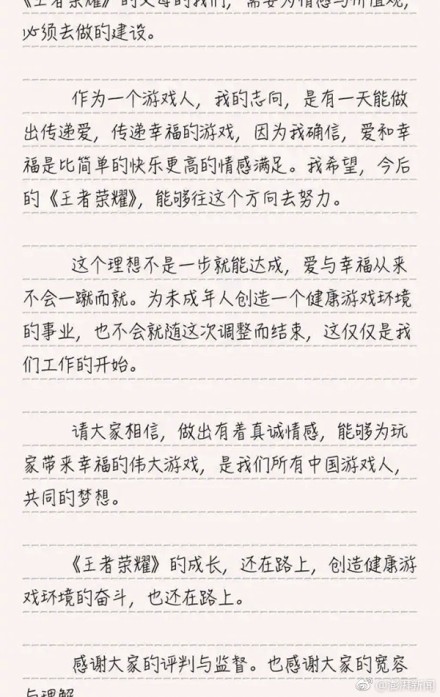 《王者荣耀》的父母的我们，需要为情感与价值观，
必须去做的建设。
作为一个游戏人，我的志向，是有一天能做
出传递爱，传递幸福的游戏，因为我确信，爱和幸
福是比简单的快乐更高的情感满足。我希望，今后
的《王者荣耀》，能够往这个方向去努力。
这个理想不是一步就能达成，爱与幸福从来
不会一蹴而就。为未成年人创造一个健康游戏环境
的事业，也不会就随这次调整而结束，这仅仅是我
们工作的开始。
请大家相信，做出有着真诚情感，能够为玩
家带来幸福的伟大游戏，是我们所有中国游戏人，
共同的梦想。
《王者荣耀》的成长，还在路上，创造健康游
戏环境的奋斗，也还在路上。
感谢大家的评判与监督。也感谢大家的宽容
与理解
@澎湃新闻